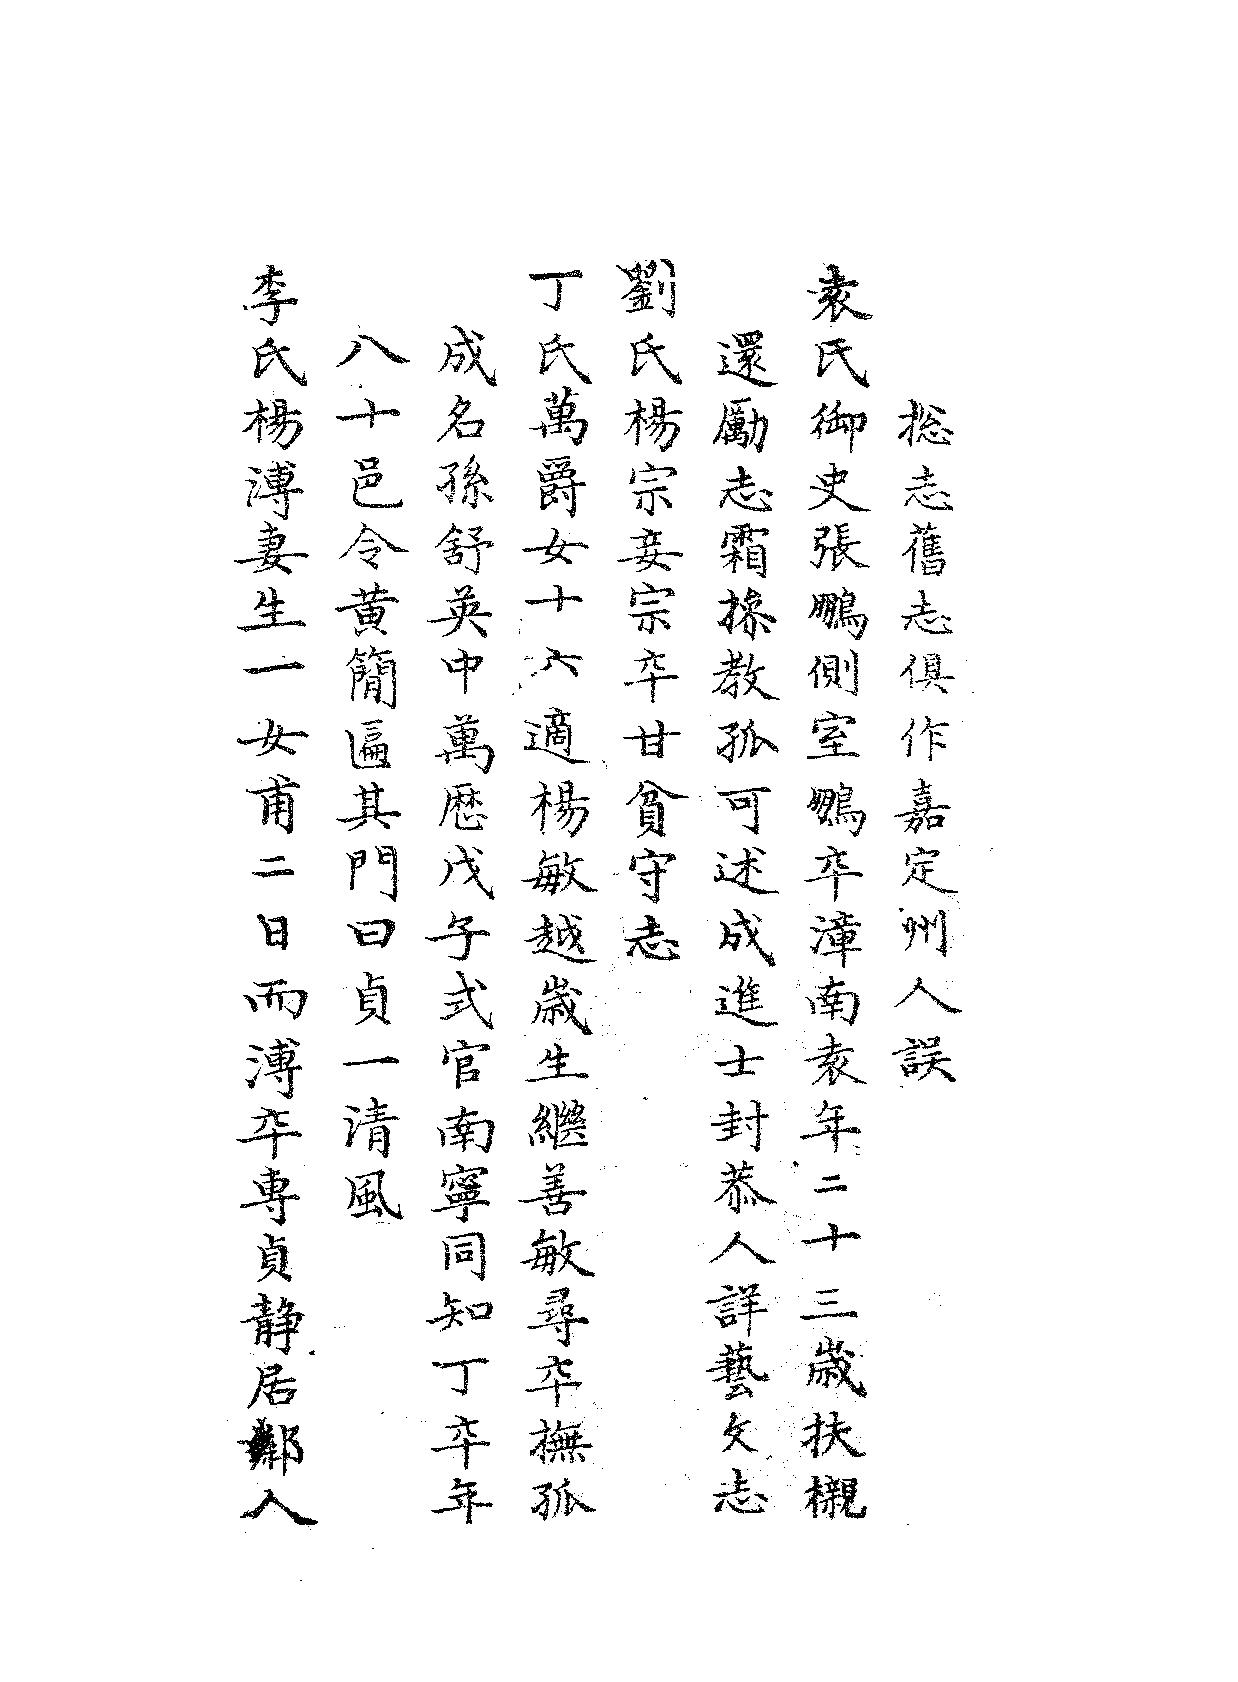 捴志舊志俱作嘉定州人誤
袁氏御史張鵬側室鵬卒漳南袁年二十三歲扶櫬
還勵志霜操教孤可述成進士封恭人詳藝文志
劉氏楊宗妾宗卒甘貧守志
丁氏萬爵女十六適楊敏越歲生繼善敏尋卒撫孤
成名孫舒英中萬歷戊子式官南寧同知丁卒年
八十邑令黄簡匾其門曰貞一清風
李氏楊溥妻生一女甫二日而溥卒專貞靜居鄰人